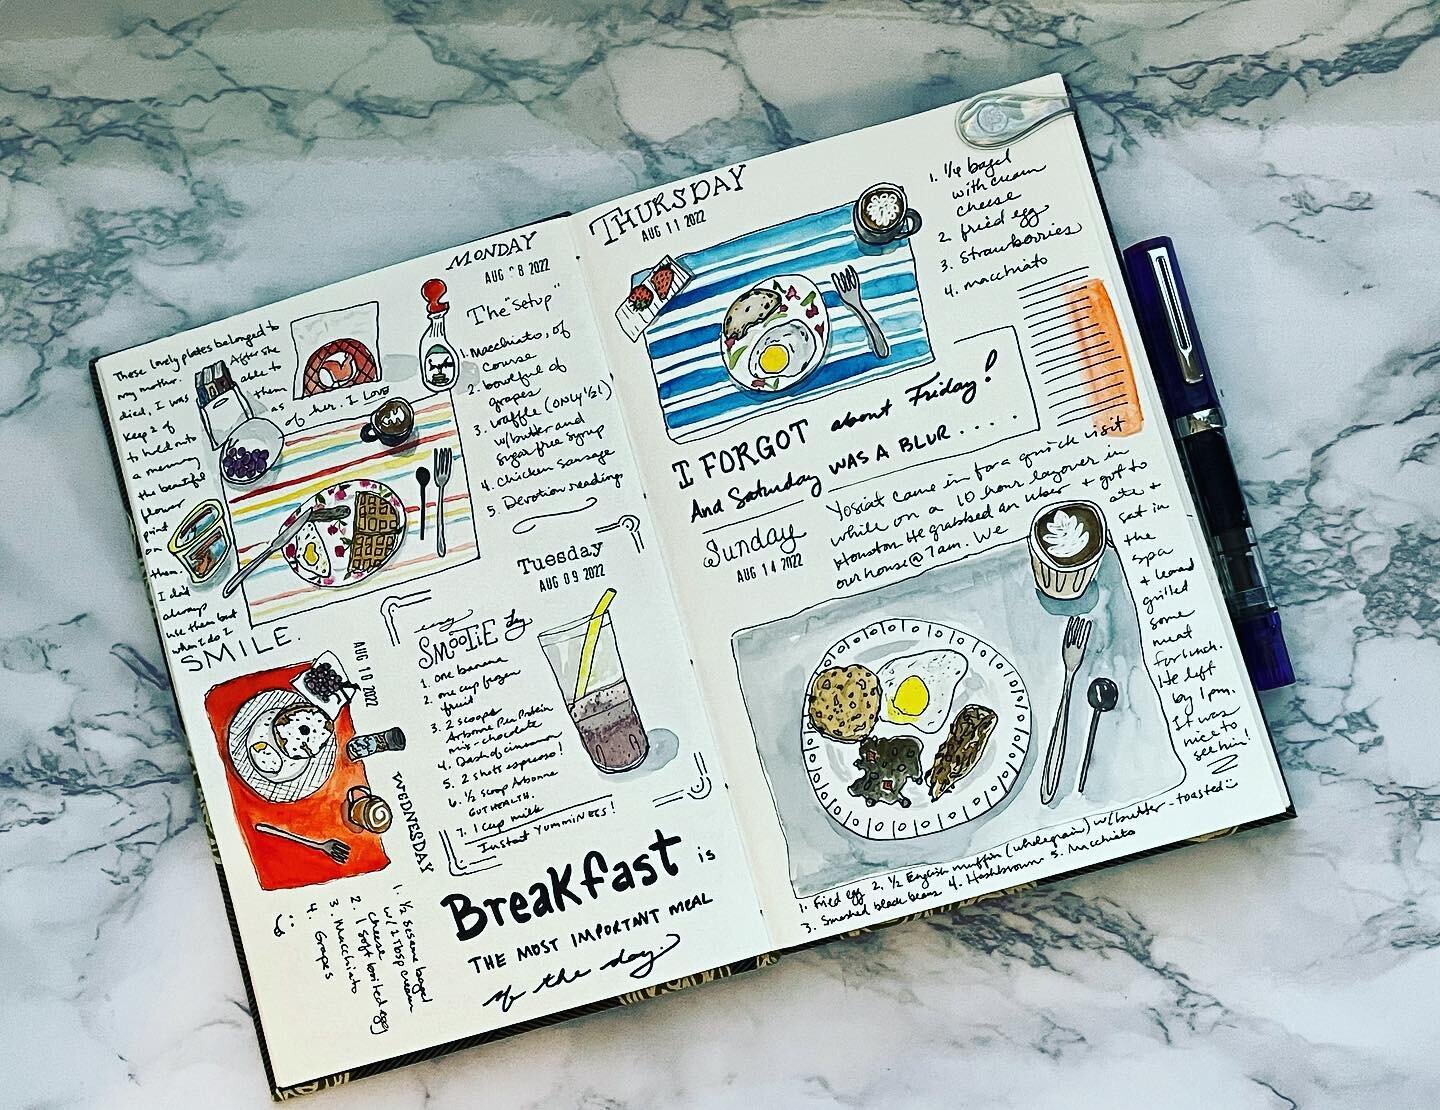 These lovely plates belonged to
my mother. After she
died, I was able to
keep 2 of them
to hold onto as
a memory of her. I Love
the beautiful
flower
print
on
them.
I don't
always
use them but
when I do I
SMILE.
MONDAY
AUG 8 2022
The "Setup"
1. Macchiato, of
course
2. bowlful of
grapes
3. waffle (ONLY 1/2!)
w/butter and
sugar free syrup
4. Chicken Sausage
5. Devotion readings
Tuesday
AUG 09 2022
easy
SMOOTIE day
1. one banana
2. one cup frozen
fruit
3. 2 scoops
Arbonne Protein
mix - chocolate
4. Dash of cinnamon
5. 2 shots espresso!
6. 1/2 scoop Arbonne
GUT HEALTH.
7. 1 cup milk
Instant YUMMINESS!
AUG 10 2022
WEDNESDAY
1. 1/2 sesame bagel
w/ 2 Tbsp cream
cheese
2. 1 soft boiled egg
3. Macchiato
4. Grapes
BreaKfast is
THE MOST IMPORTANT MEAL
of the day.
THURSDAY
AUG 11 2022
1. 1/4 bagel
with cream
cheese
2. fried egg
3. Strawberries
4. macchiato
I FORGOT about Friday!
And Saturday WAS A BLUR . . . .
Sunday
AUG 14 2022
Yosiat came in for a quick visit
while on a 10 hour layover in
Houston. He grabbed an Uber + got to
our house @ 7am. We
ate +
sat in
the
spa
+
grilled
some
meat
for lunch.
He left
by 1pm.
It was
nice to
see him!
1. Fried egg 2. 1/2 English muffin (wholegrain) w/butter - toasted
3. Smashed black beans 4. Hashbrowns 5. Macchiato